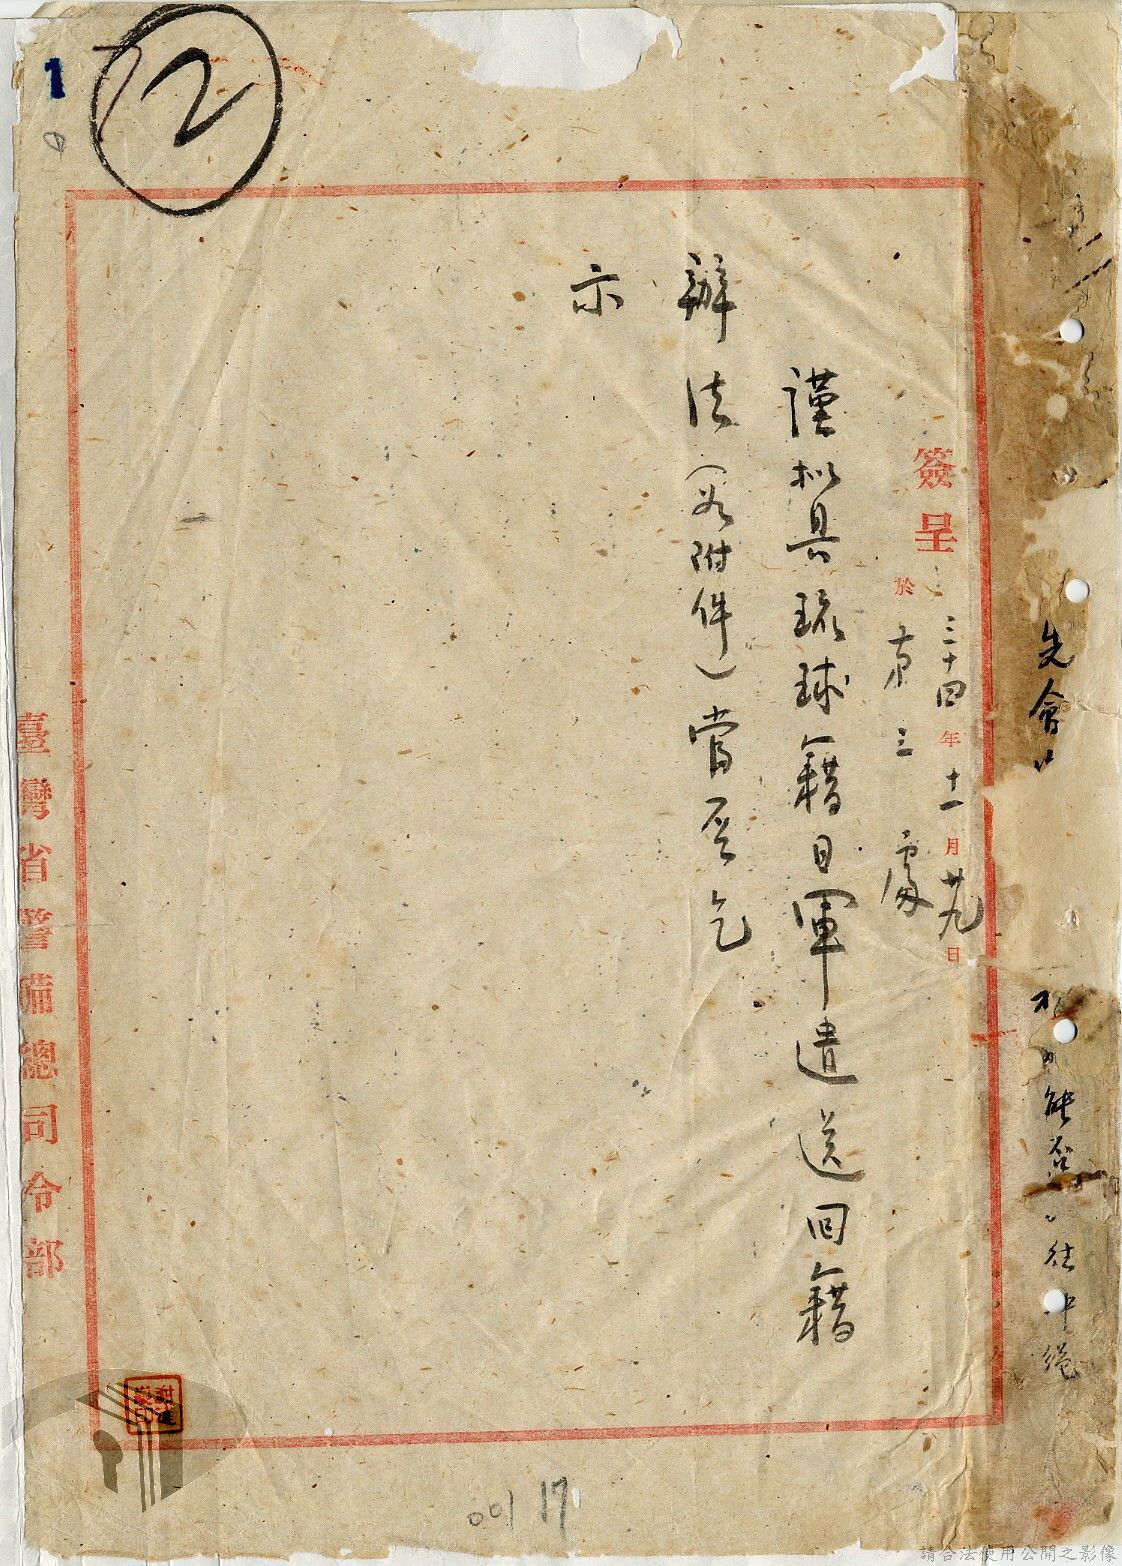 先會
能否
往沖繩
簽呈
三十四年十一月廿九日
於
第三處
謹擬具琉球籍日軍遣送回籍
辦法（如附件）當否乞
示
臺灣省警備總司令部
1
12
001 17
請合法使用公開之影像